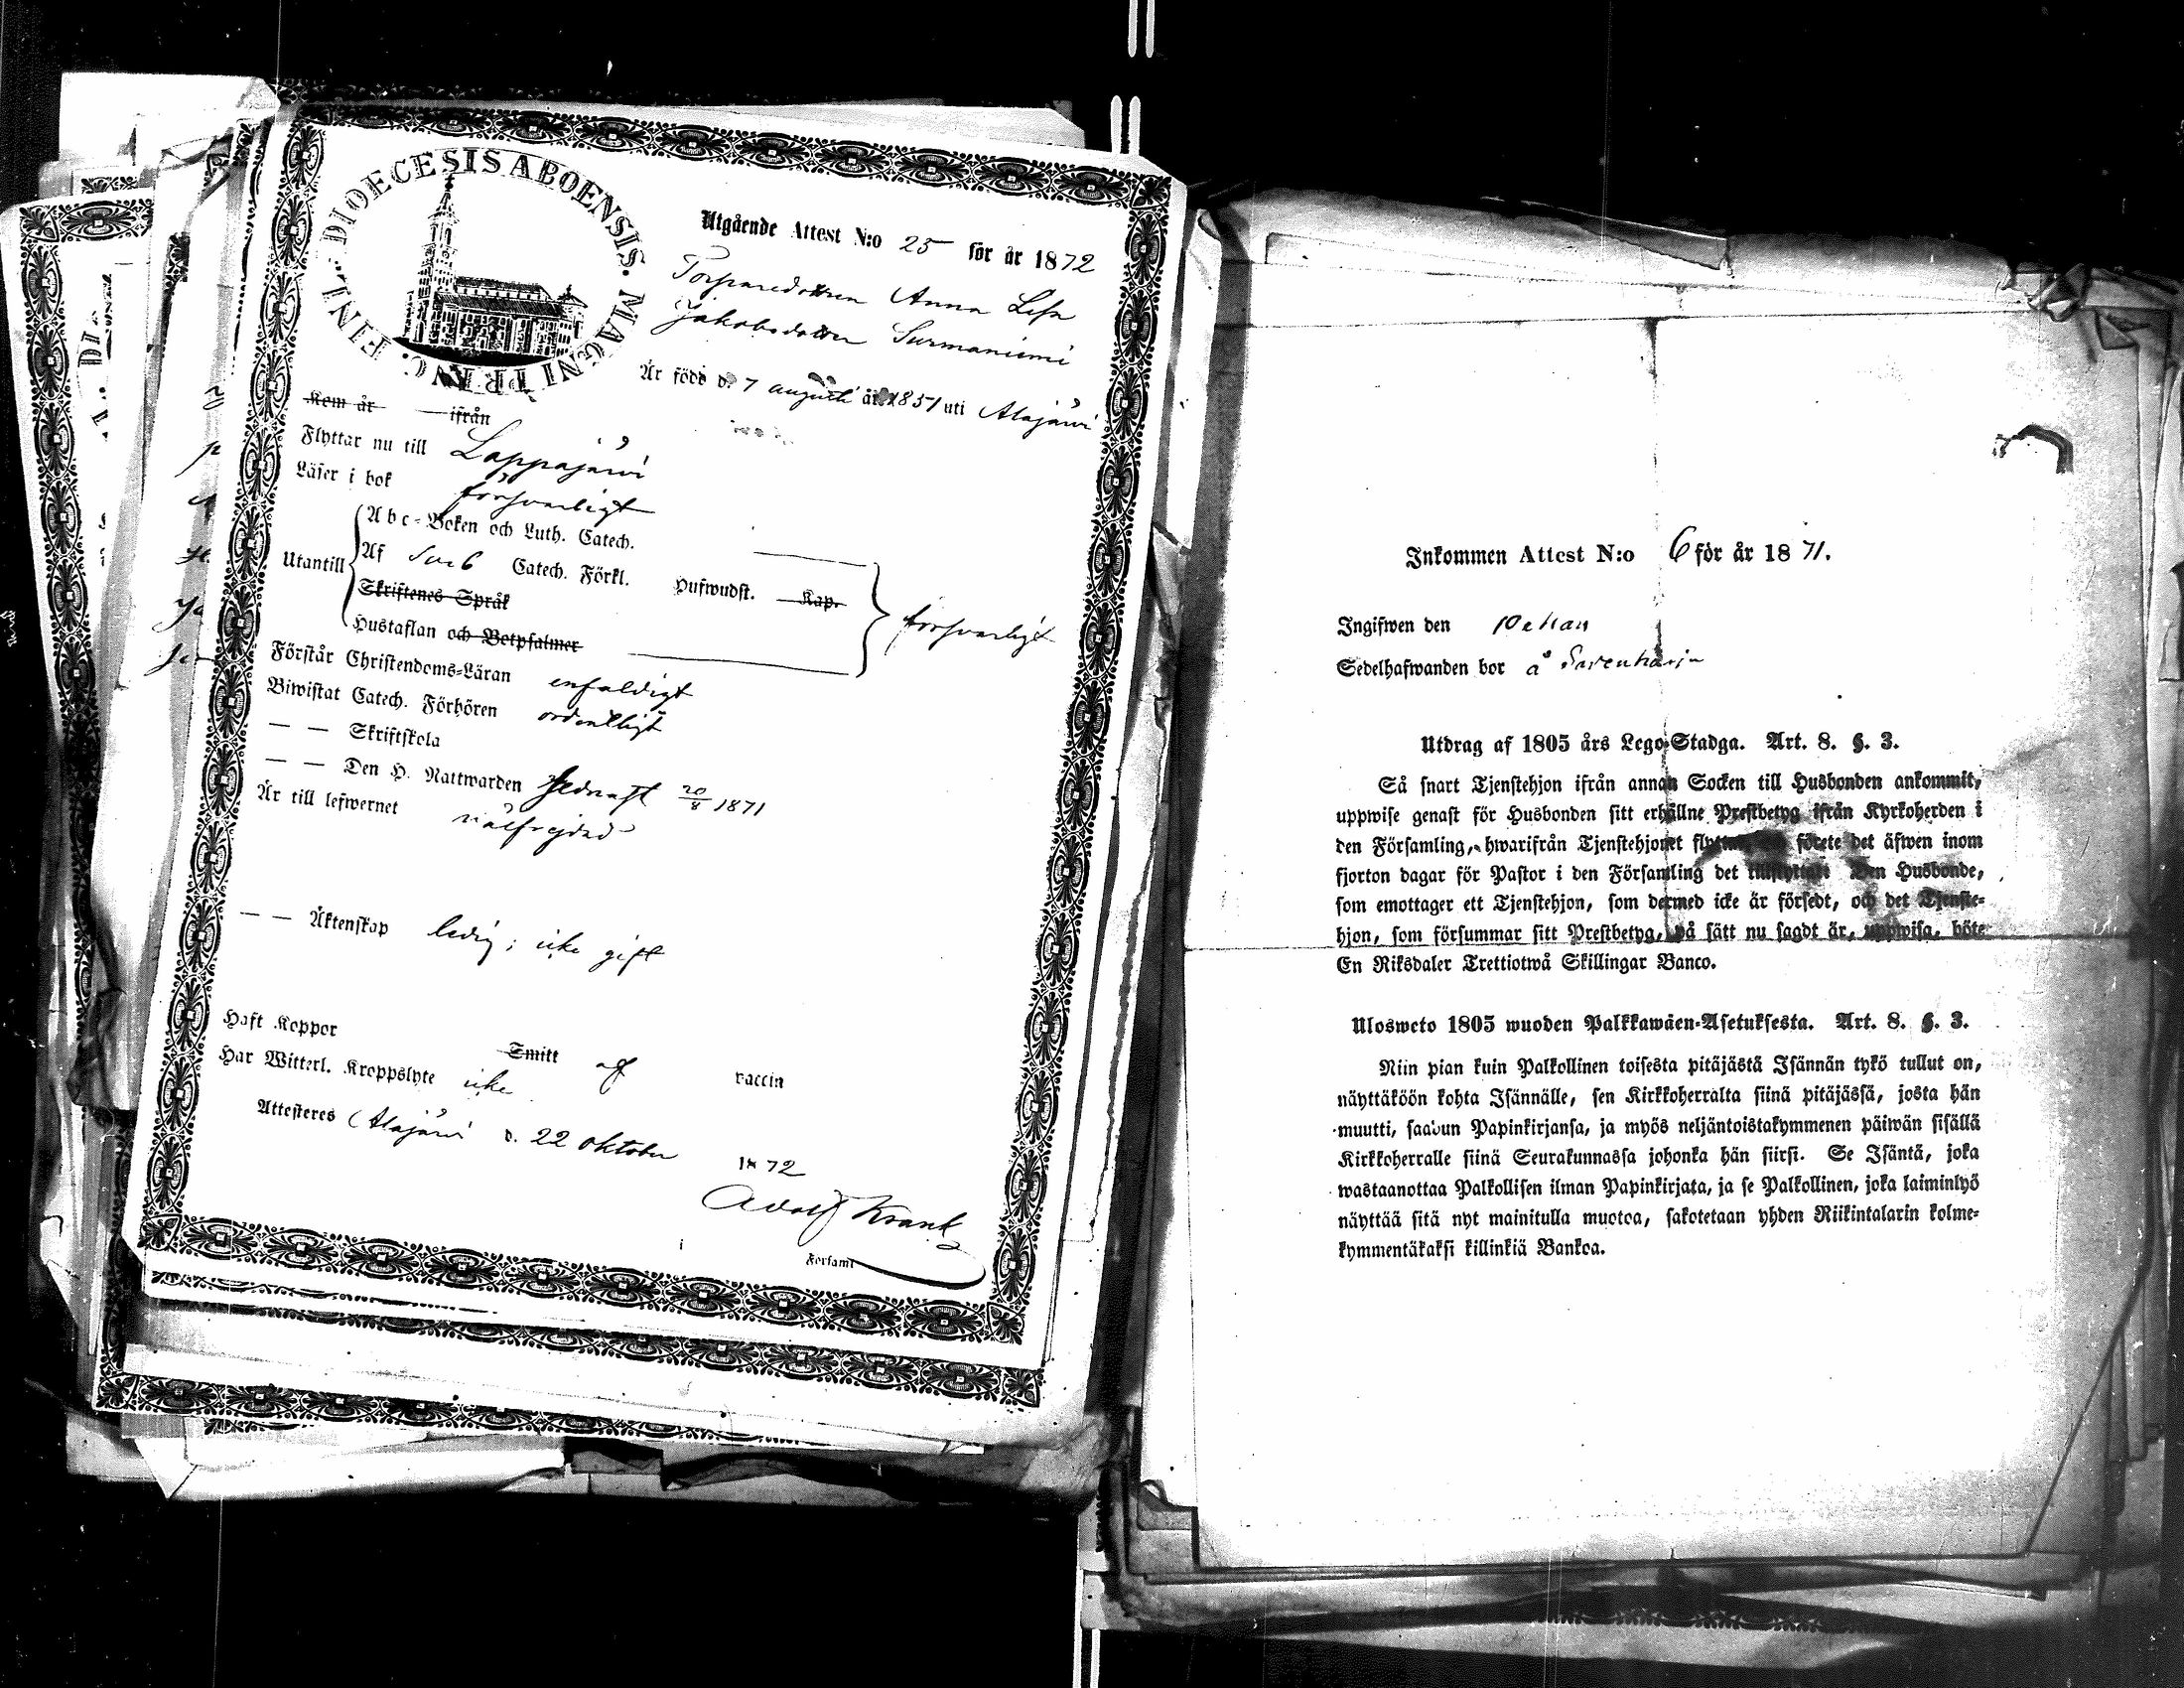 DIOECESIS ABOENSIS. MAGNI PRINC. FINL.
Utgående Attest N:o 25 för år 1872
Torparedottren Anna Lisa
Jakobsdotter Surmaniemi
Är född d. 7 augusti år 1851 uti Alajärvi
Kom år ifrån
Flyttar nu till Lappajärvi
Läser i bok försvarligt
Utantill
Abc-Boken och Luth. Catech.
Af Catech. Förkl. Hufwudst. Kap.
Skriftenes Språk
Hustaflan och Botpsalmer
försvarligt
Förstår Christendoms-Läran enfaldigt
Biwistat Catech. Förhören ordentligt
— — Skriftskola
— — Den H. Nattwarden sednast 20/8 1871
Är till lefwernet välfrejdad
— — Äktenskap ledig; icke gift
Haft Koppor Smitt af vaccin
Har Witterl. Kroppslyte icke
Attesteres Alajärvi d. 22 oktober 1872
Adolf Krank
Församl
Inkommen Attest N:o 6 för år 1871.
Ingifwen den
Sedelhafwanden bor å
Utdrag af 1805 års Lego-Stadga. Art. 8. §. 3.
Så snart Tjenstehjon ifrån annan Socken till Husbonden ankommit,
uppwise genast för Husbonden sitt erhållne Prestbetyg ifrån Kyrkoherden i
den Församling, hwarifrån Tjenstehjonet förete det äfwen inom
fjorton dagar för Pastor i den Församling det Den Husbonde,
som emottager ett Tjenstehjon, som dermed icke är försedt, och det Tjenste-
hjon, som försummar sitt Prestbetyg, på sätt nu sagdt är, uppwisa, böte
En Riksdaler Trettiotwå Skillingar Banco.
Ulosweto 1805 wuoden Palkkawäen-Asetuksesta. Art. 8. §. 3.
Niin pian kuin Palkollinen toisesta pitäjästä Isännän tykö tullut on,
näyttäköön kohta Isännälle, sen Kirkkoherralta siinä pitäjässä, josta hän
muutti, saadun Papinkirjansa, ja myös neljäntoistakymmenen päiwän sisällä
Kirkkoherralle siinä Seurakunnassa johonka hän siirsi. Se Isäntä, joka
wastaanottaa Palkollisen ilman Papinkirjata, ja se Palkollinen, joka laiminlyö
näyttää sitä nyt mainitulla muotoa, sakotetaan yhden Riikintalarin kolme-
kymmentäkaksi killinkiä Bankoa.